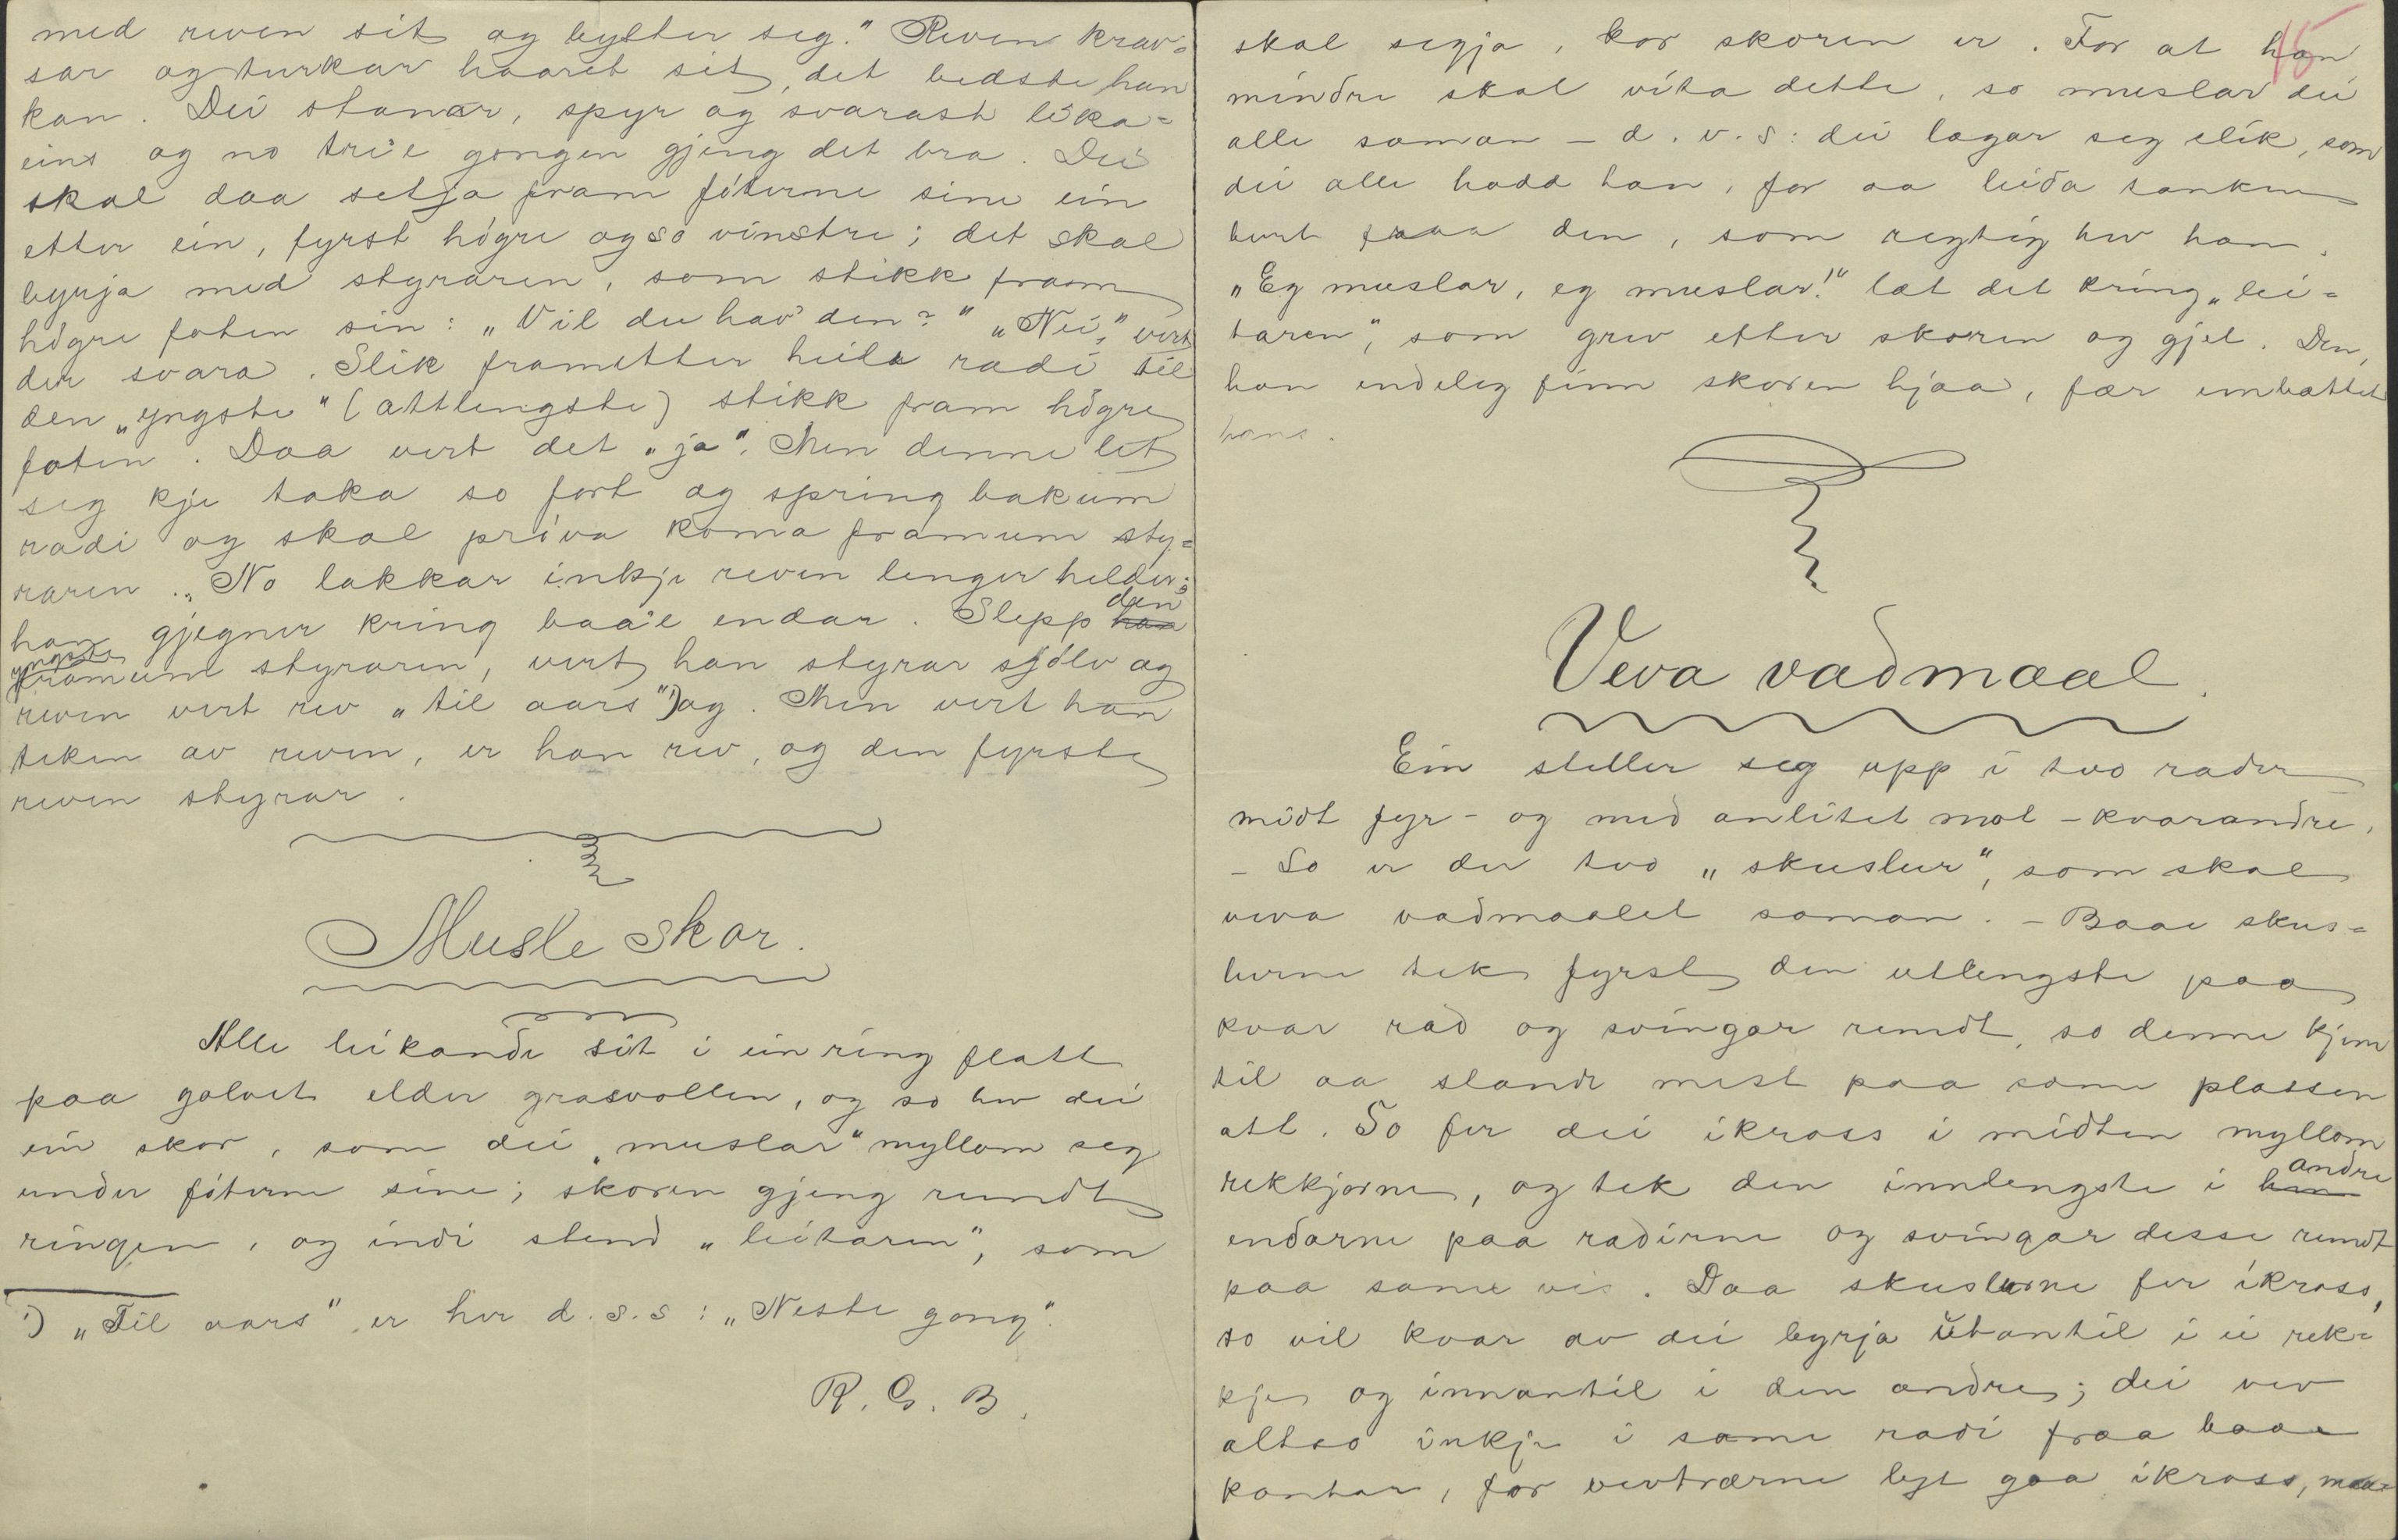 med reven sit og bylter seg." Reven krav-
sar og turkar haaret sit, det bedste han
kan. Dei stanar, spyr og svarast lika-
eins og no tri'e gongen gjeng det bra. Dei
skal daa setja fram føterne sine ein
etter ein, fyrst høgre og so vinstre; det skal
byrja med styraren, som stikk fram
høgre foten sin: „Vil du hav' den?" „Nei," vert
der svara. Slik frametter heile radi til
den „yngste" (attlengste) stikk fram høgre
foten. Daa vert det „ja". Men denne let
seg kje taka so fort og spring bakum
radi og skal prøva koma framum sty-
raren. „No lakkar inkje reven lenger helder;
han gjegner kring baa'e endar. Slepp den
yngste framum styraren, vert han styrar sjølv og
reven vert rev „til aars"¹) og. Men vert han
teken av reven, er han rev, og den fyrste
reven styrar.
Musle skor.
Alle leikande sit i ein ring flatt
paa golvet elder grasvollen, og so hev dei
ein skor, som dei „muslar" myllom seg
under føterne sine; skoren gjeng rundt
ringen, og indi stend „leitaren", som
¹) „Til aars" er her d.s.s: „Neste gong".
R. G. B.
15
skal segja, kor skoren er. For at han
mindre skal vita dette, so muslar dei
alle saman – d.v.s: dei lagar seg slik, som
dei alle hadd han, for aa leida tanken
burt fraa den, som regtig hev han.
„Eg muslar, eg muslar!" læt det kring „lei-
taren", som grev etter skoren og gjel. Den,
han endeleg finn skoren hjaa, fær embættet
hans.
Veva vadmaal.
Ein steller seg upp i two rader
midt fyr- og med anlitet mot – kvarandre.
– So er der two „skuslur", som skal
veva vadmaalet saman. – Baae skus-
lurne tek fyrst den utlengste paa
kvar rad og svingar rundt, so denne kjem
til aa stande mest paa same plassen
att. So fer dei ikross i midten myllom
rekkjorne, og tek den innlengste i andre
endarne paa radirne og svingar desse rundt
paa same vis. Daa skuslurne fer ikross,
so vil kvar av dei byrja utantil i ei rek-
kje og innantil i den andre; dei vev
altso inkje i same radi fraa baae
kantar, for vevtrærne lyt gaa ikross, maa-